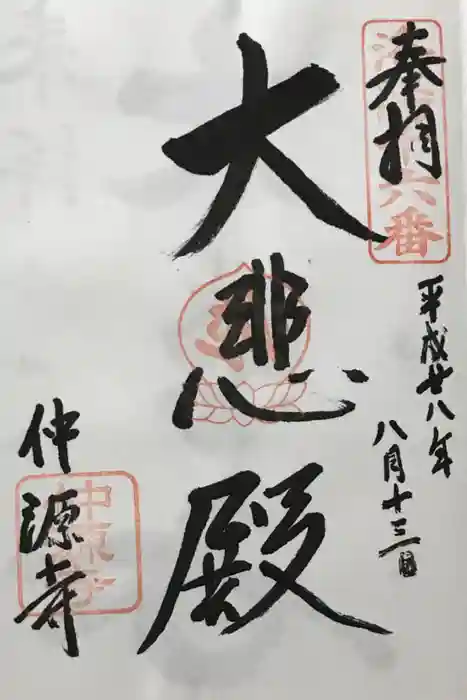 奉拝
平成廿八年
八月十三日
大悲殿
仲源寺
六番
仲源寺